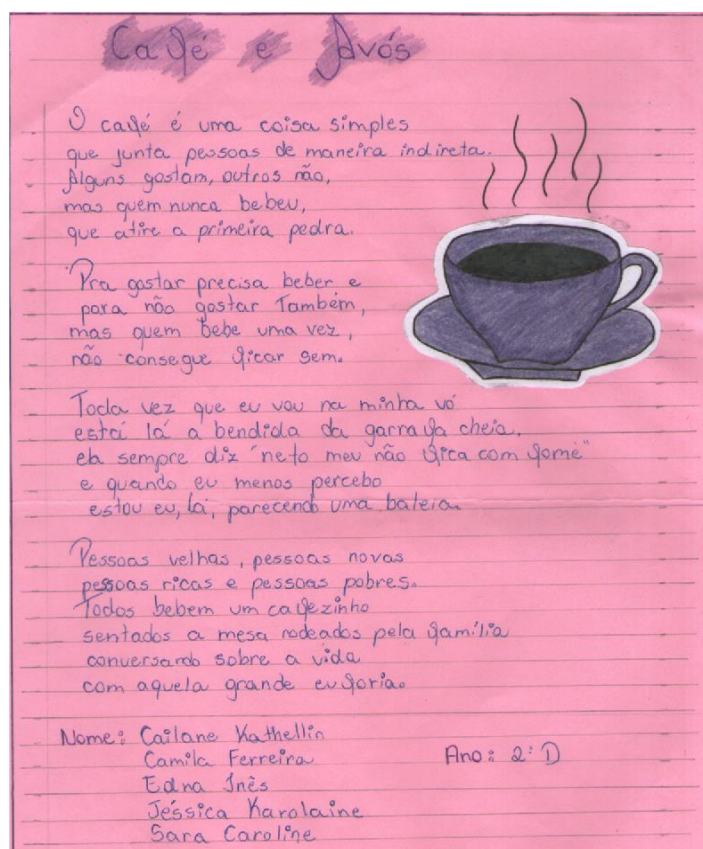 Café e Avós
O café é uma coisa simples
que junta pessoas de maneira indireta.
Alguns gostam, outros não,
mas quem nunca bebeu,
que atire a primeira pedra.
Pra gostar precisa beber e
para não gostar Também,
mas quem bebe uma vez,
não consegue ficar sem.
Toda vez que eu vou na minha vó
está lá a bendida da garrafa cheia,
ela sempre diz "neto meu não fica com fome"
e quando eu menos percebo
estou eu, lá, parecendo uma baleia.
Pessoas velhas, pessoas novas
pessoas ricas e pessoas pobres.
Todos bebem um cafezinho
sentados a mesa rodeados pela família
conversando sobre a vida
com aquela grande euforia.
Nome: Cailane Kathellin
Camila Ferreira Ano: 2: D
Edna Inês
Jéssica Karolaine
Sara Caroline